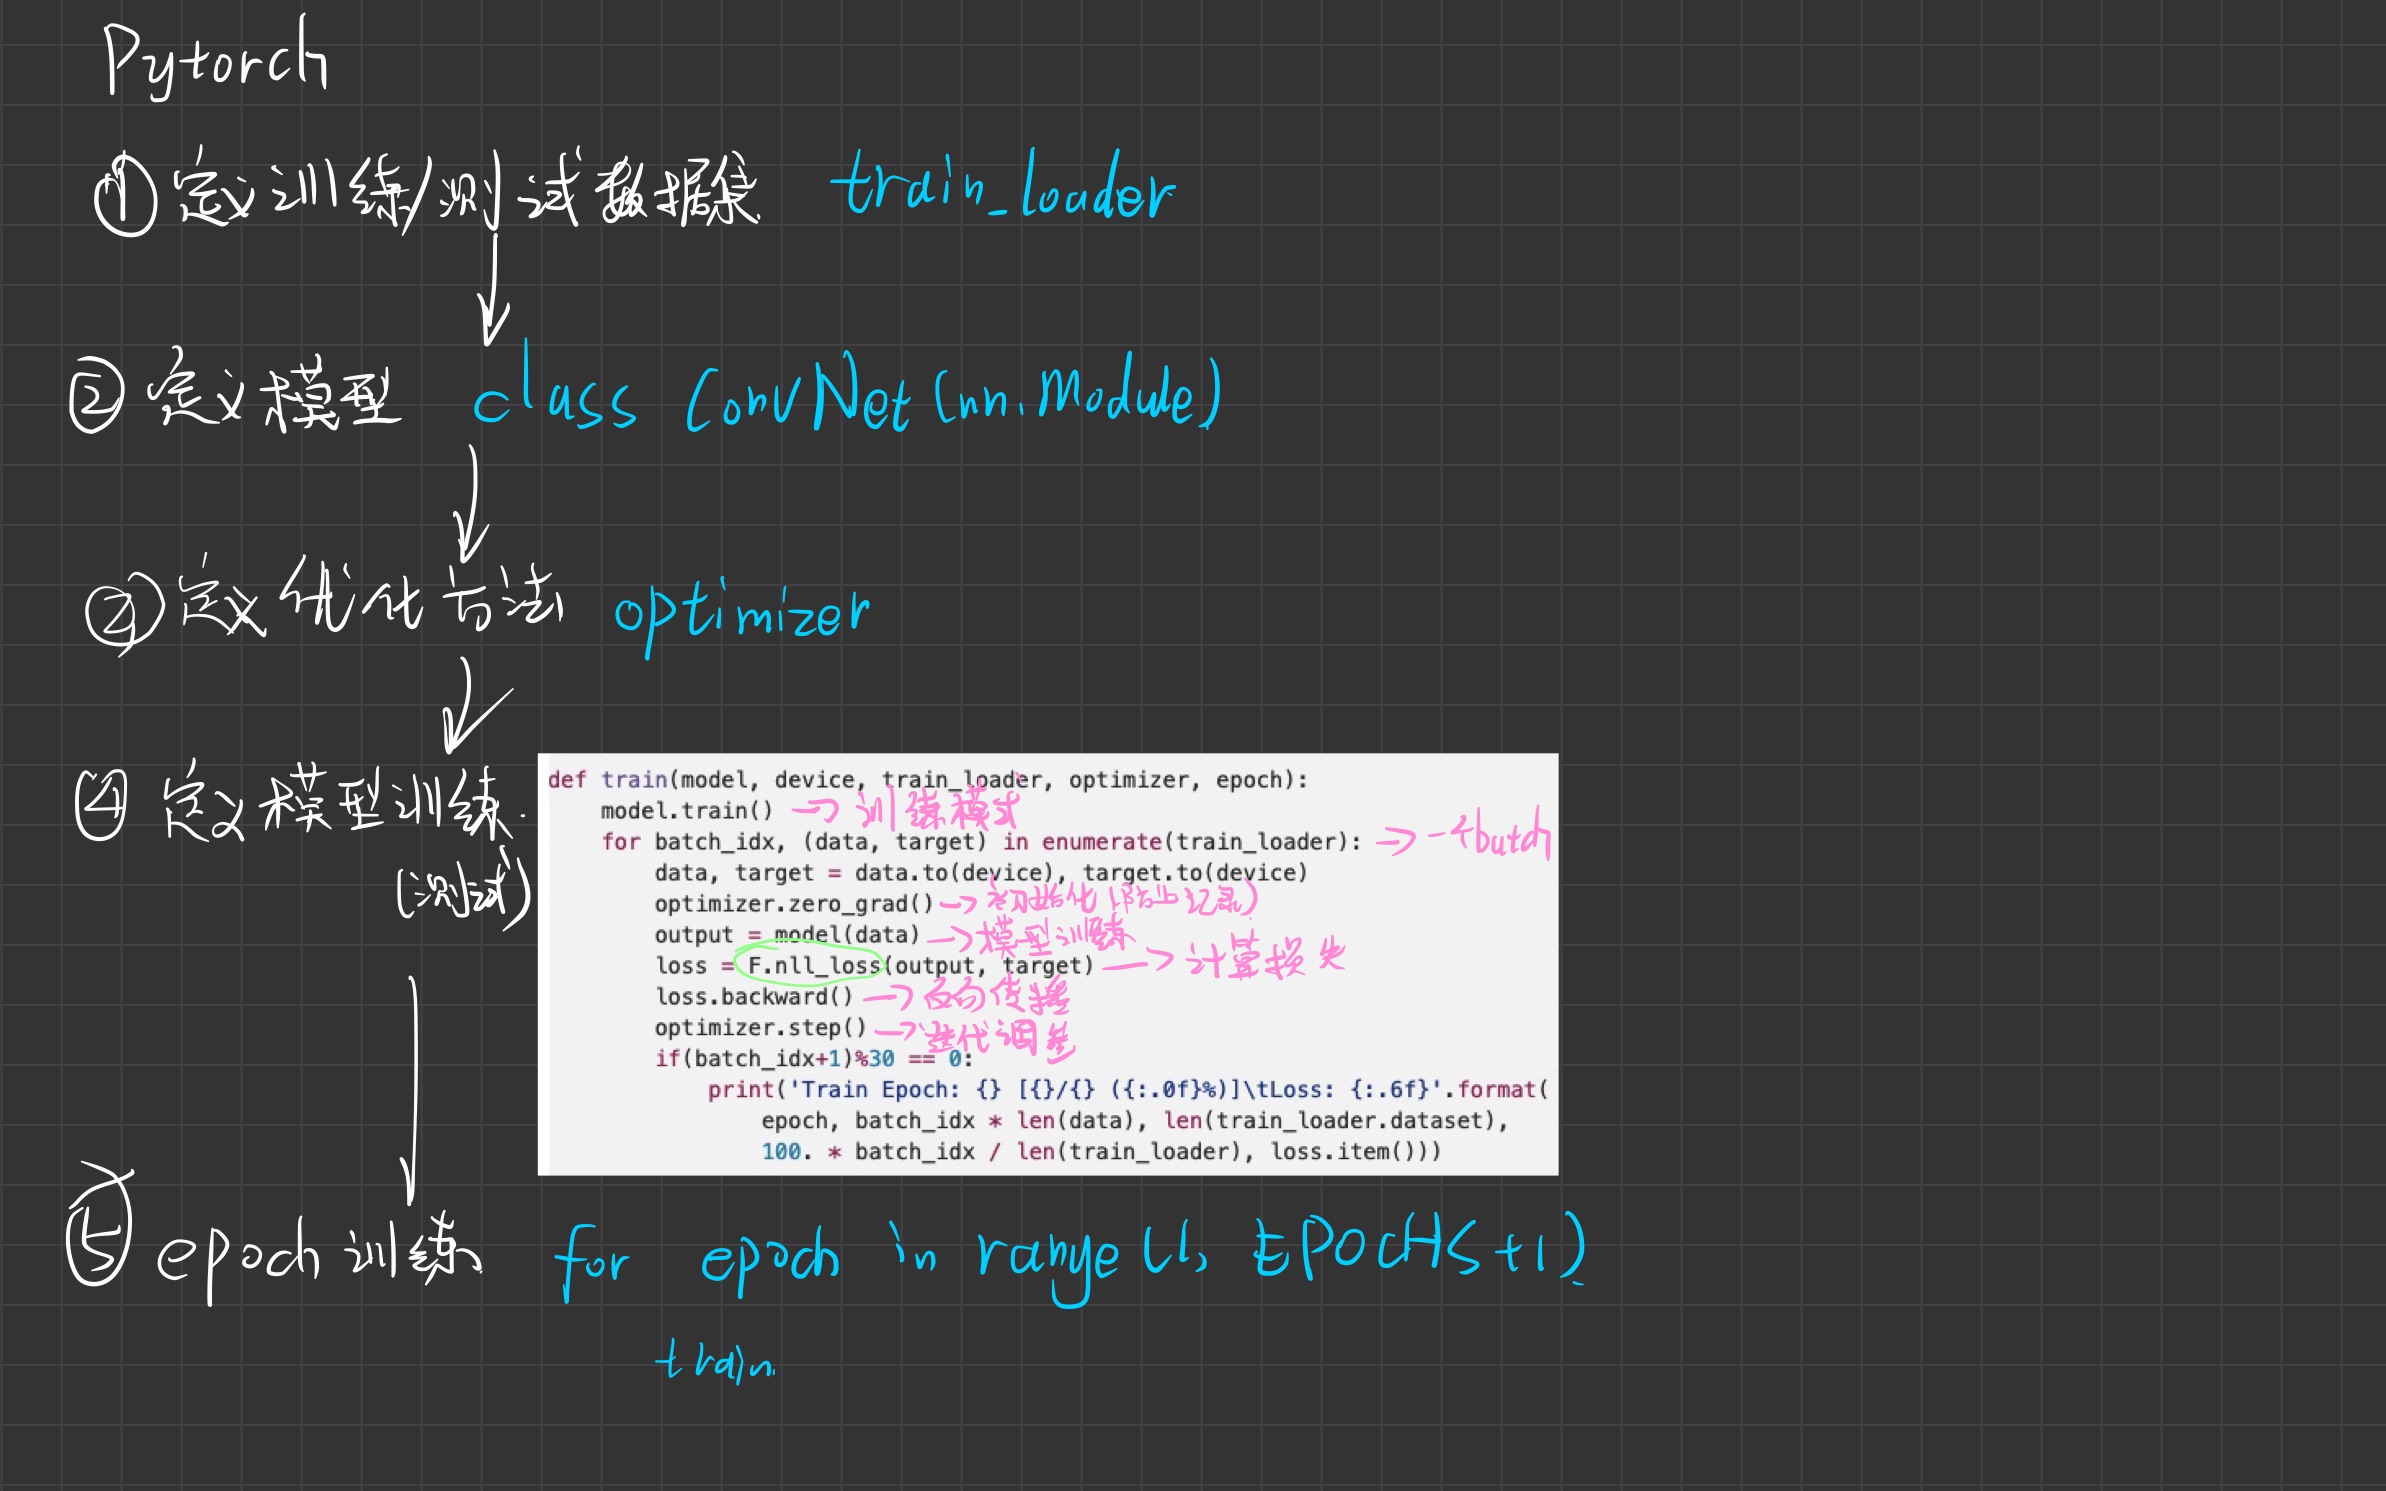 Pytorch
① 定义训练/测试数据集 train_loader
② 定义模型 class ConvNet(nn.Module)
③ 定义优化方法 optimizer
④ 定义模型训练.
(测试)
def train(model, device, train_loader, optimizer, epoch):
model.train() → 训练模式
for batch_idx, (data, target) in enumerate(train_loader): → 一个batch
data, target = data.to(device), target.to(device)
optimizer.zero_grad() → 初始化(防止记录)
output = model(data) → 模型训练
loss = F.nll_loss(output, target) → 计算损失
loss.backward() → 反向传播
optimizer.step() → 迭代调差
if(batch_idx+1)%30 == 0:
print('Train Epoch: {} [{}/{} ({:.0f}%)]\tLoss: {:.6f}'.format(
epoch, batch_idx * len(data), len(train_loader.dataset),
100. * batch_idx / len(train_loader), loss.item()))
⑤ epoch训练 for epoch in range(1, EPOCHS+1)
train